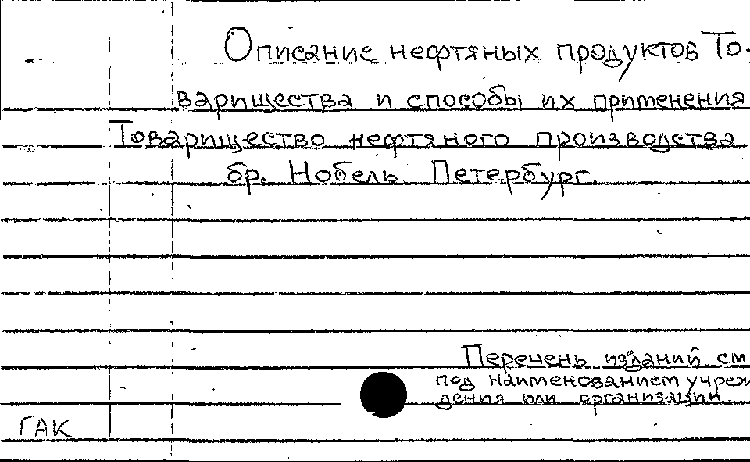 Описание нефтяных продуктов То-
варищества и способы их применения
Товарищество нефтяного производства
бр. Нобель Петербург.
Перечень изданий см
под наименованием учреж
дения или организации.
ГАК